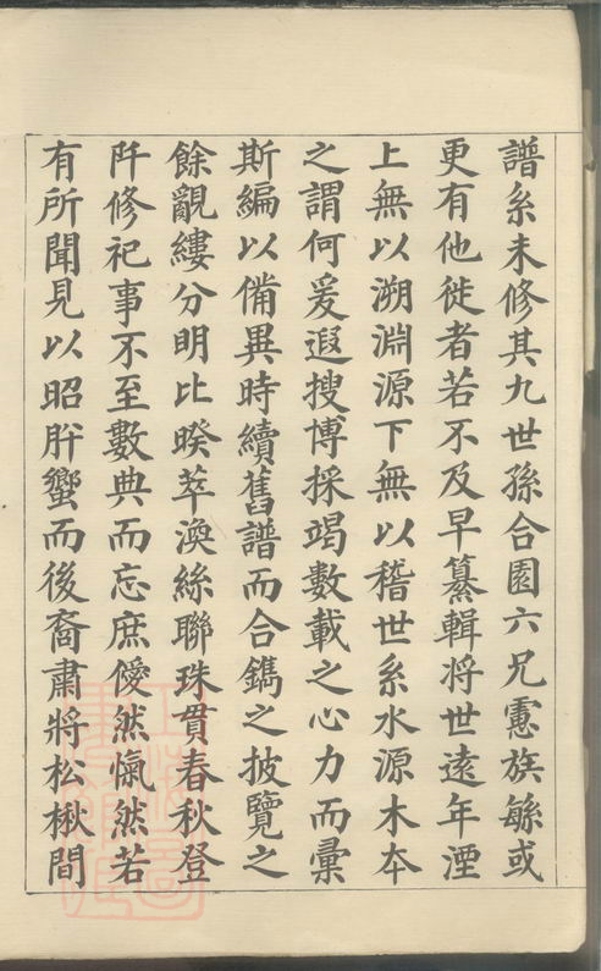 譜系未修其九世孫合園六兄慮族緐或
更有他徙者若不及早纂輯將世遠年湮
上無以溯淵源下無以稽世系水源木本
之謂何爰遐搜博採竭數載之心力而彙
斯編以備異時續舊譜而合鐫之披覽之
餘覼縷分明比暌萃渙絲聯珠貫春秋登
阡修祀事不至數典而忘庶僾然愾然若
有所聞見以昭肸蠁而後裔肅將松楸間